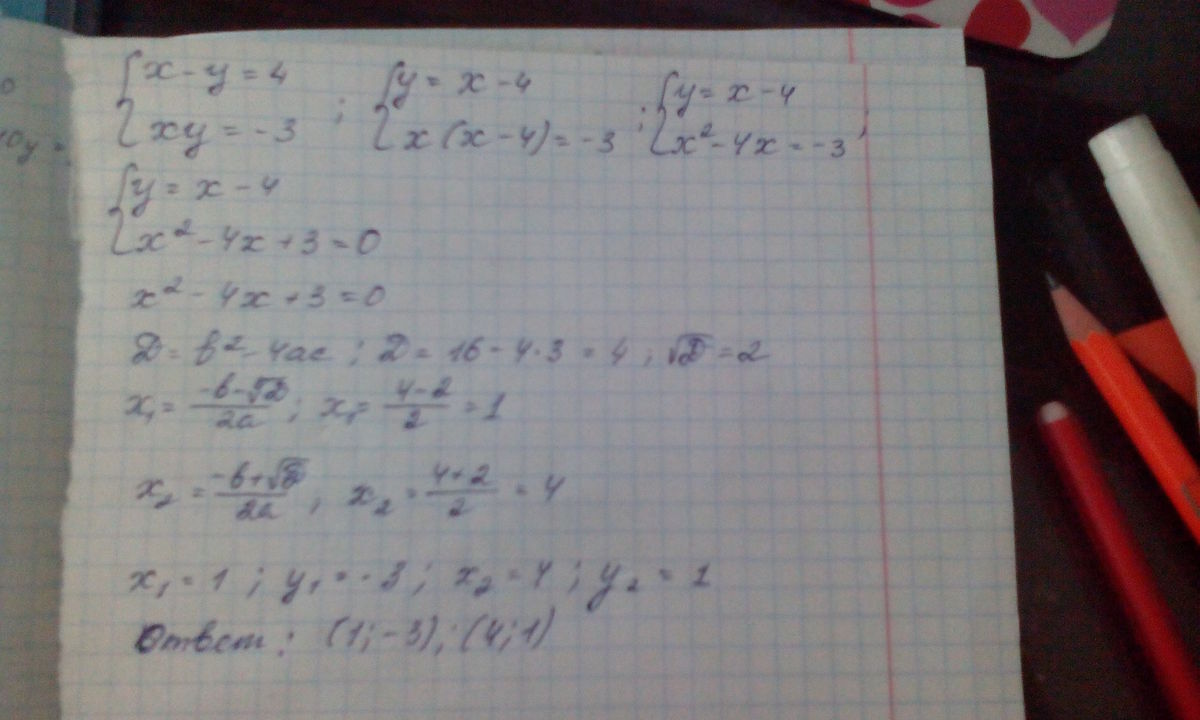 {x - y = 4 ; {y = x - 4 ; {y = x - 4 ;
{xy = -3 {x(x - 4) = -3 {x² - 4x = -3
{y = x - 4
{x² - 4x + 3 = 0
x² - 4x + 3 = 0
D = b² - 4ac ; D = 16 - 4·3 = 4 ; √D = 2
x₁ = (-b - √D)/2a ; x₁ = (4 - 2)/2 = 1
x₂ = (-b + √D)/2a ; x₂ = (4 + 2)/2 = 4
x₁ = 1 ; y₁ = -3 ; x₂ = 4 ; y₂ = 1
Ответ: (1; -3); (4; 1)